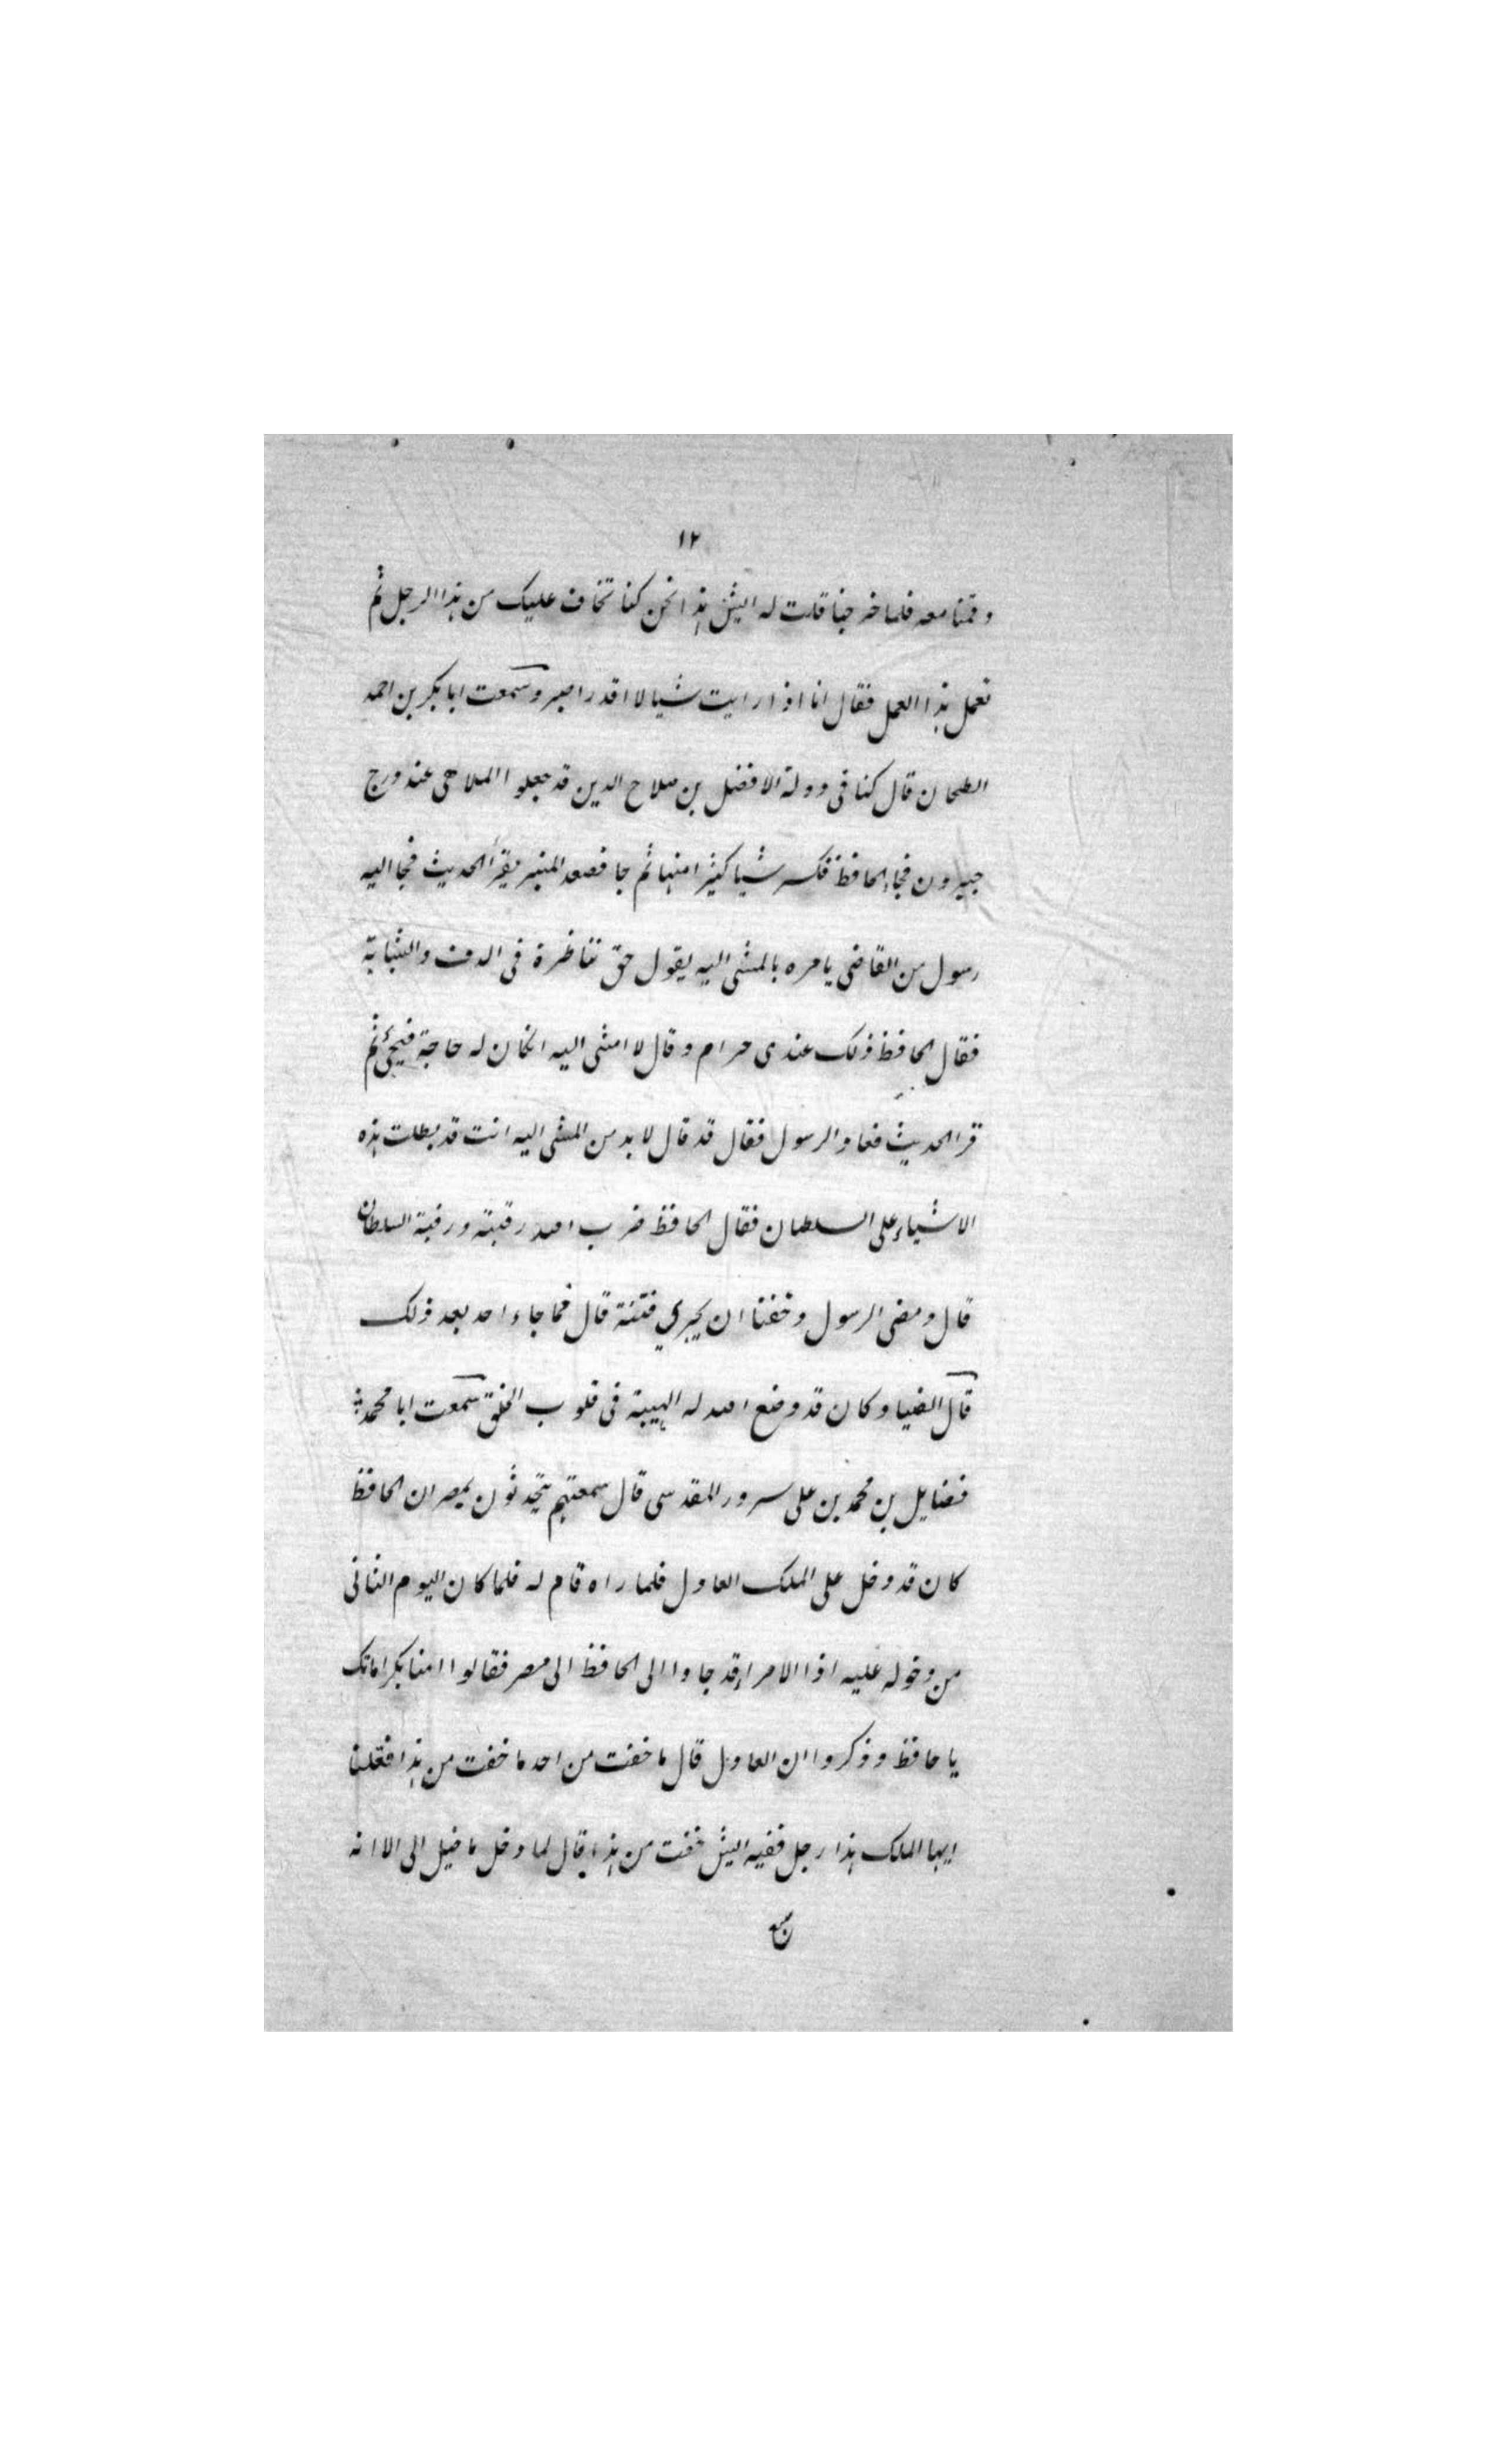 ١٢
وقمنا معه فلما خرجنا قلت له ايش هذا نحن كنا نخاف عليك من هذا الرجل ثم
تعمل هذا العمل فقال انا اذا رايت شيا لا اقدر اصبر وسمعت ابا بكر بن احمد
الطحان قال كنا فى دولة الافضل بن صلاح الدين قد جعلوا الملاهى عند درج
جيرون فجاء الحافظ فكسر شيا كثيرا منها ثم جا فصعد المنبر يقرأ الحديث فجا اليه
رسول من القاضى يامره بالمشى اليه يقول حق تناظرة فى الدف والشبابة
فقال الحافظ ذلك عندى حرام وقال لا امشى اليه انكان له حاجة فيجئ ثم
قرا الحديث فعاد الرسول فقال قد قال لا بد من المشى اليه انت قد بطلت هذه
الاشياء على السلطان فقال الحافظ ضرب الله رقبته ورقبة السلطان
قال ومضى الرسول وخفنا ان يجري فتنة قال فما جاء احد بعد ذلك
قال الضيا وكان قد وضع الله له الهيبة فى قلوب الخلق سمعت ابا محمد
فضايل بن محمد بن على سرور المقدسى قال سمعتهم يتحدثون بمصر ان الحافظ
كان قد دخل على الملك العادل فلما راه قام له فلما كان اليوم الثانى
من دخوله عليه اذا الامراء قد جاوا الى الحافظ الى مصر فقالوا امنا بكراماتك
يا حافظ وذكروا ان العادل قال ما خفت من احد ما خفت من هذا فقلنا
ايها الملك هذا رجل فقيه ايش خفت من هذا قال لما دخل ما خيل الى الا انه
سبع